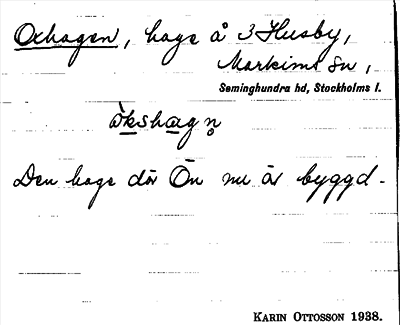 Oxhagen, hage å 3 Husby,
Markims sn,
Seminghundra hd, Stockholms l.
ò̀kshagn̥
Den hage där Ön nu är byggd.
KARIN OTTOSSON 1938.